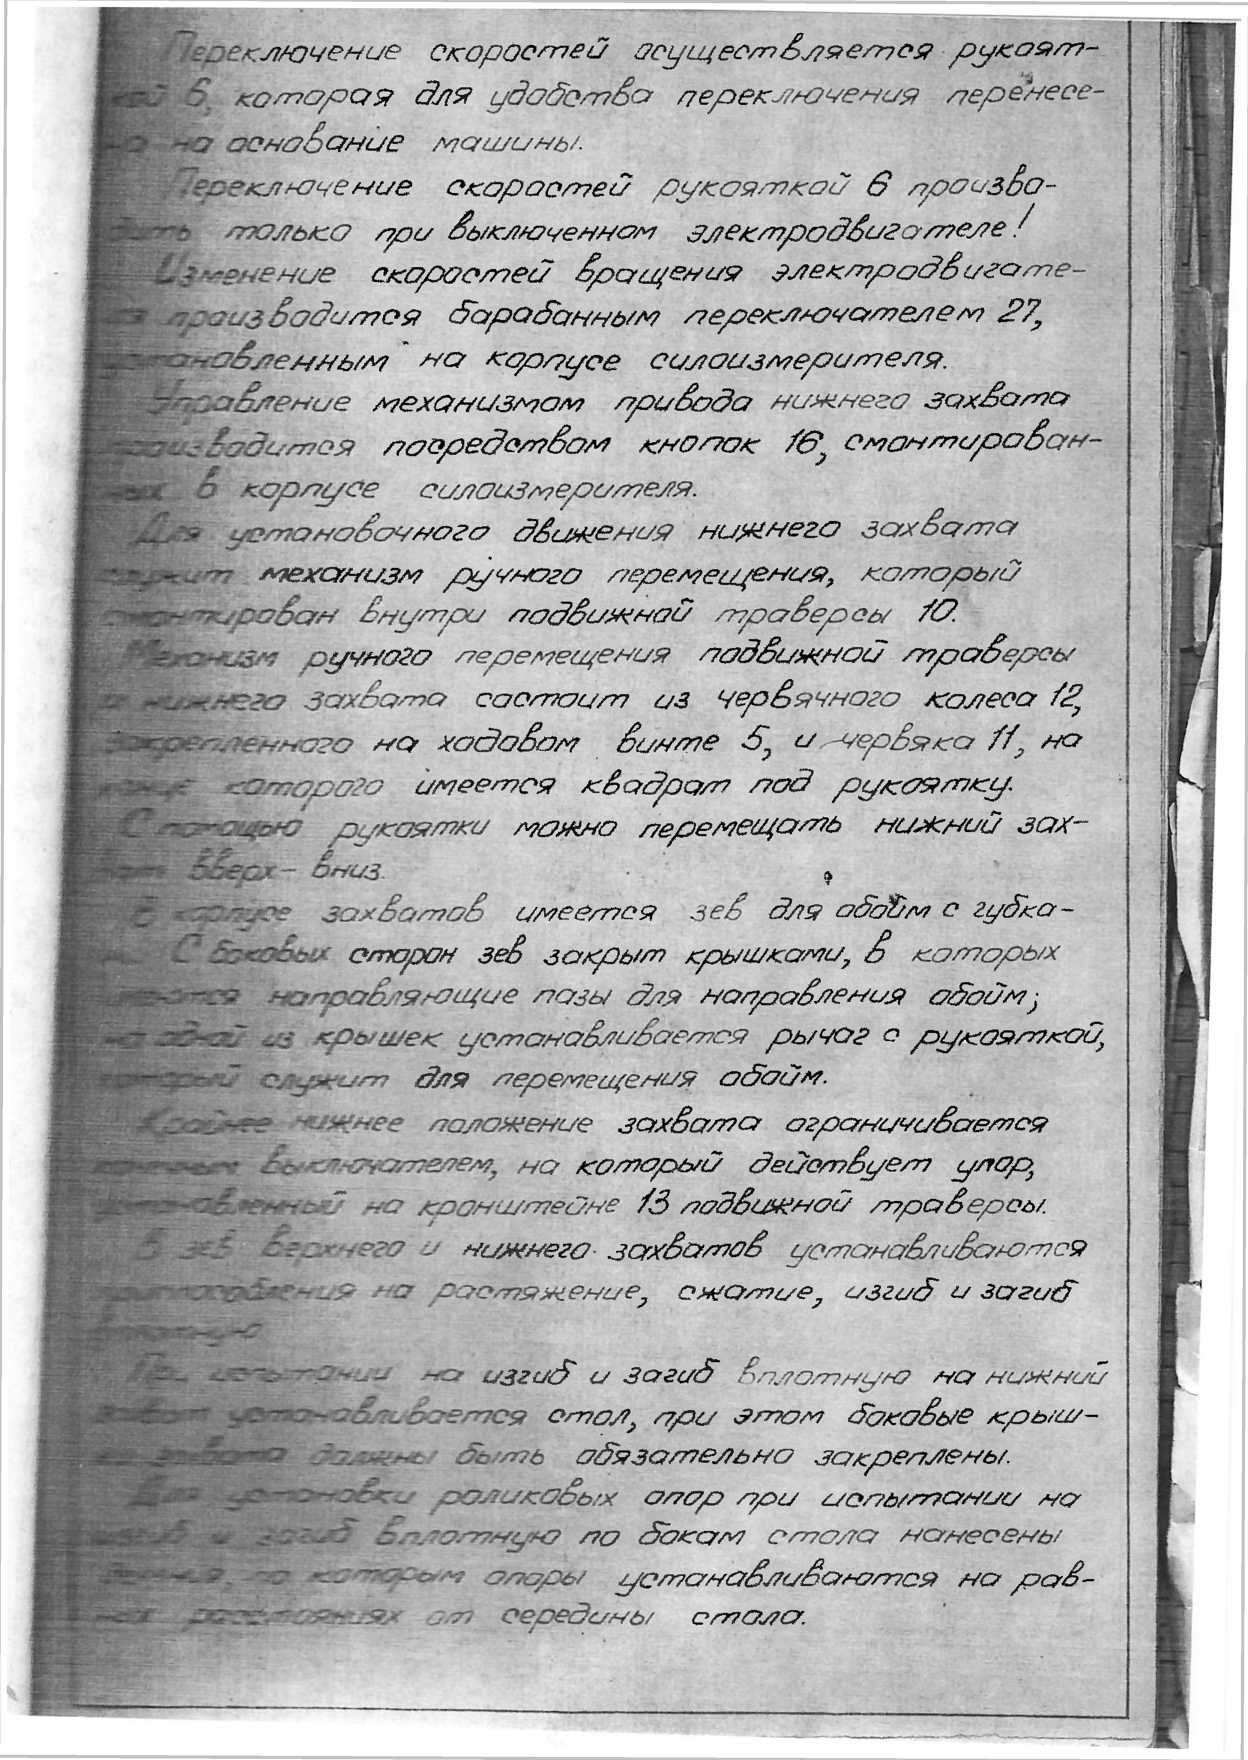 Переключение скоростей осуществляется рукоят-
кой 6, которая для удобства переключения перенесе-
на на основание машины.
Переключение скоростей рукояткой 6 произво-
дить только при выключенном электродвигателе!
Изменение скоростей вращения электродвигате-
ля производится барабанным переключателем 27,
установленным на корпусе силоизмерителя.
Управление механизмом привода нижнего захвата
производится посредством кнопок 16, смонтирован-
ных в корпусе силоизмерителя.
Для установочного движения нижнего захвата
служит механизм ручного перемещения, который
смонтирован внутри подвижной траверсы 10.
Механизм ручного перемещения подвижной траверсы
и нижнего захвата состоит из червячного колеса 12,
закрепленного на ходовом винте 5, и червяка 11, на
конце которого имеется квадрат под рукоятку.
С помощью рукоятки можно перемещать нижний зах-
ват вверх-вниз.
В корпусе захватов имеется зев для обойм с губка-
ми. С боковых сторон зев закрыт крышками, в которых
имеются направляющие пазы для направления обойм;
на одной из крышек устанавливается рычаг с рукояткой,
который служит для перемещения обойм.
Крайнее нижнее положение захвата ограничивается
конечным выключателем, на который действует упор,
установленный на кронштейне 13 подвижной траверсы.
В зев верхнего и нижнего захватов устанавливаются
приспособления на растяжение, сжатие, изгиб и загиб
вплотную
При испытании на изгиб и загиб вплотную на нижний
захват устанавливается стол, при этом боковые крыш-
ки захвата должны быть обязательно закреплены.
Для установки роликовых опор при испытании на
изгиб и загиб вплотную по бокам стола нанесены
по которым опоры устанавливаются на рав-
ных расстояниях от середины стола.